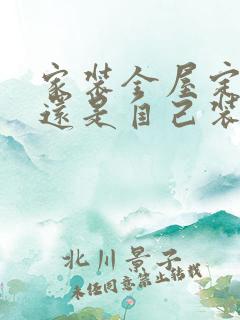 家装全屋定
还是自己装
北川景子
未经同意禁止转载